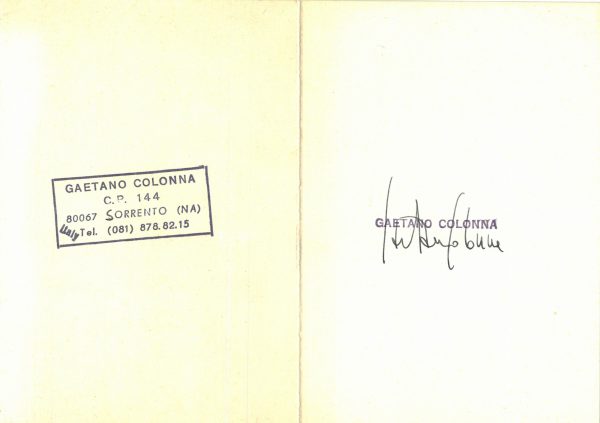 GAETANO COLONNA
C.P. 144
80067 SORRENTO (NA)
Italy Tel. (081) 878.82.15
GAETANO COLONNA
Gaetano Colonna